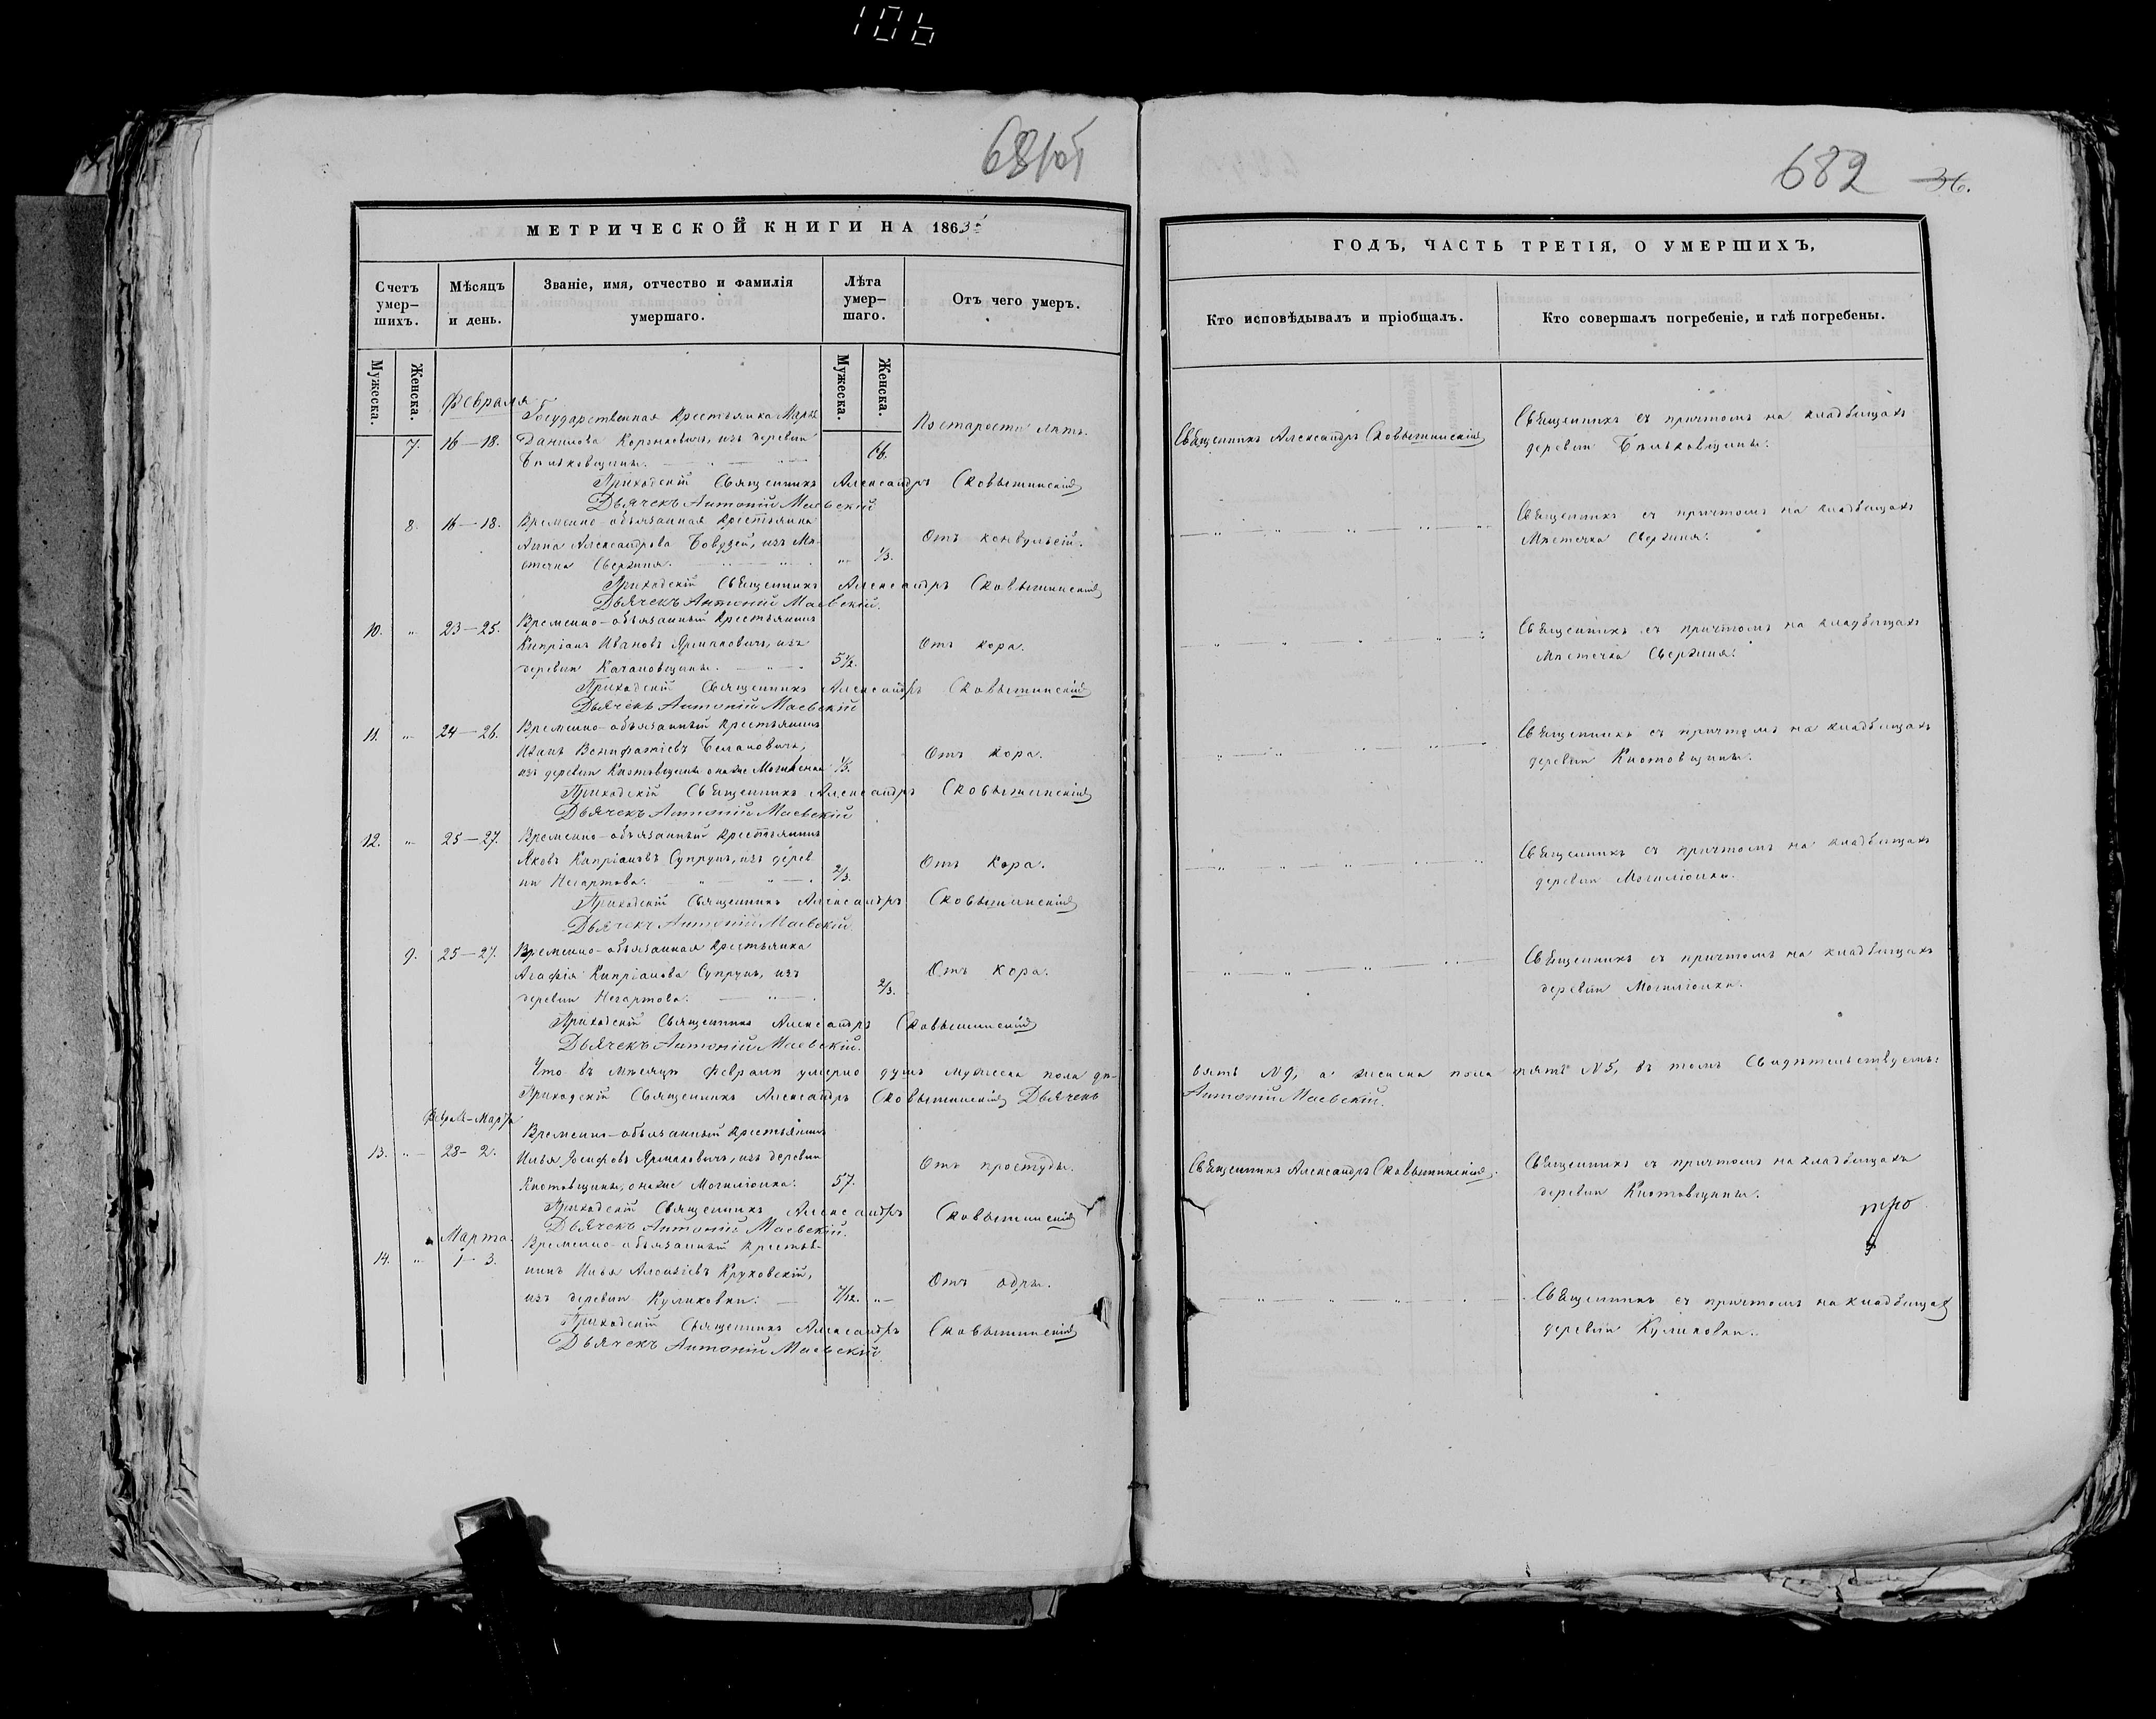 106
682
36.
МЕТРИЧЕСКОЙ КНИГИ НА 1863
Счетъ умер-шихъ.
Мѣсяцъ и день.
Званіе, имя, отчество и фамилія умершаго.
Лѣта умер-шаго.
Отъ чего умеръ.
Мужеска.
Женска.
Мужеска.
Женска.
Февраля
Государственная Крестьянка
7. 16-18. Данилова изъ деревни
66.
По старости лѣтъ.
Приходскій Священникъ Александръ Сковышинскій
Дьячекъ Антоній Маевскій
8. 16-18. Временно-обязанная Крестьянка
Анна Александрова изъ Мѣ-
стечка Свержня. 1/3.
Отъ конвульсій.
Приходскій Священникъ Александръ Сковышинскій
Дьячекъ Антоній Маевскій.
10. " 23-25. Временно-обязанный Крестьянинъ
Кипріанъ Ивановъ Ярмаковичъ, изъ
деревни Качановщины. 5 1/2.
Отъ кора.
Приходскій Священникъ Александръ Сковышинскій
Дьячекъ Антоній Маевскій
11. " 24-26. Временно-обязанный Крестьянинъ
Иванъ Вонифатіевъ
изъ деревни онаже 1/3.
Отъ кора.
Приходскій Священникъ Александръ Сковышинскій
Дьячекъ Антоній Маевскій
12. " 25-27. Временно-обязанный Крестьянинъ
Яковъ Кипріановъ Супрунъ, изъ дерев-
ни Негартова. 2/3.
Отъ Кора.
Приходскій Священникъ Александръ Сковышинскій
Дьячекъ Антоній Маевскій.
9. 25-27. Временно-обязанная Крестьянка
Агафія Кипріанова Супрунъ, изъ
деревни Негартова. 2/3.
Отъ кора.
Приходскій Священникъ Александръ Сковышинскій
Дьячекъ Антоній Маевскій.
Что въ Мѣсяцѣ Февралѣ умерло душъ мужеска пола де-
Приходскій Священникъ Александръ Сковышинскій Дьячекъ
13. " 28-2. Временно-обязанный Крестьянинъ
Илья Іосифовъ Ярмаковичъ, изъ деревни
онаже Могиліонка. 57.
Отъ простуды.
Приходскій Священникъ Александръ Сковышинскій
Дьячекъ Антоній Маевскій.
Марта.
14. " 1-3. Временно-обязанный Крестья-
нинъ Илья Алексѣевъ Круковскій,
изъ деревни Куликовки. 7/12.
Приходскій Священникъ Александръ Сковышинскій
Дьячекъ Антоній Маевскій
ГОДЪ, ЧАСТЬ ТРЕТІЯ, О УМЕРШИХЪ,
Кто исповѣдывалъ и пріобщалъ.
Кто совершалъ погребеніе, и гдѣ погребены.
Священникъ Александръ Сковышинскій
Священникъ съ причтомъ на кладбищахъ
деревни
Священникъ съ причтомъ на кладбищахъ
Мѣстечка Свержня.
Священникъ съ причтомъ на кладбищахъ
Мѣстечка Свержня.
Священникъ съ причтомъ на кладбищахъ
деревни
Священникъ съ причтомъ на кладбищахъ
деревни Могиліонки.
Священникъ съ причтомъ на кладбищахъ
деревни Могиліонки.
вять N 9, а женска пола пять N 5, въ томъ Свидѣтельствуемъ:
Антоній Маевскій.
Священникъ Александръ Сковышинскій.
Священникъ съ причтомъ на кладбищахъ
деревни
Священникъ съ причтомъ на кладбищахъ
деревни Куликовки.